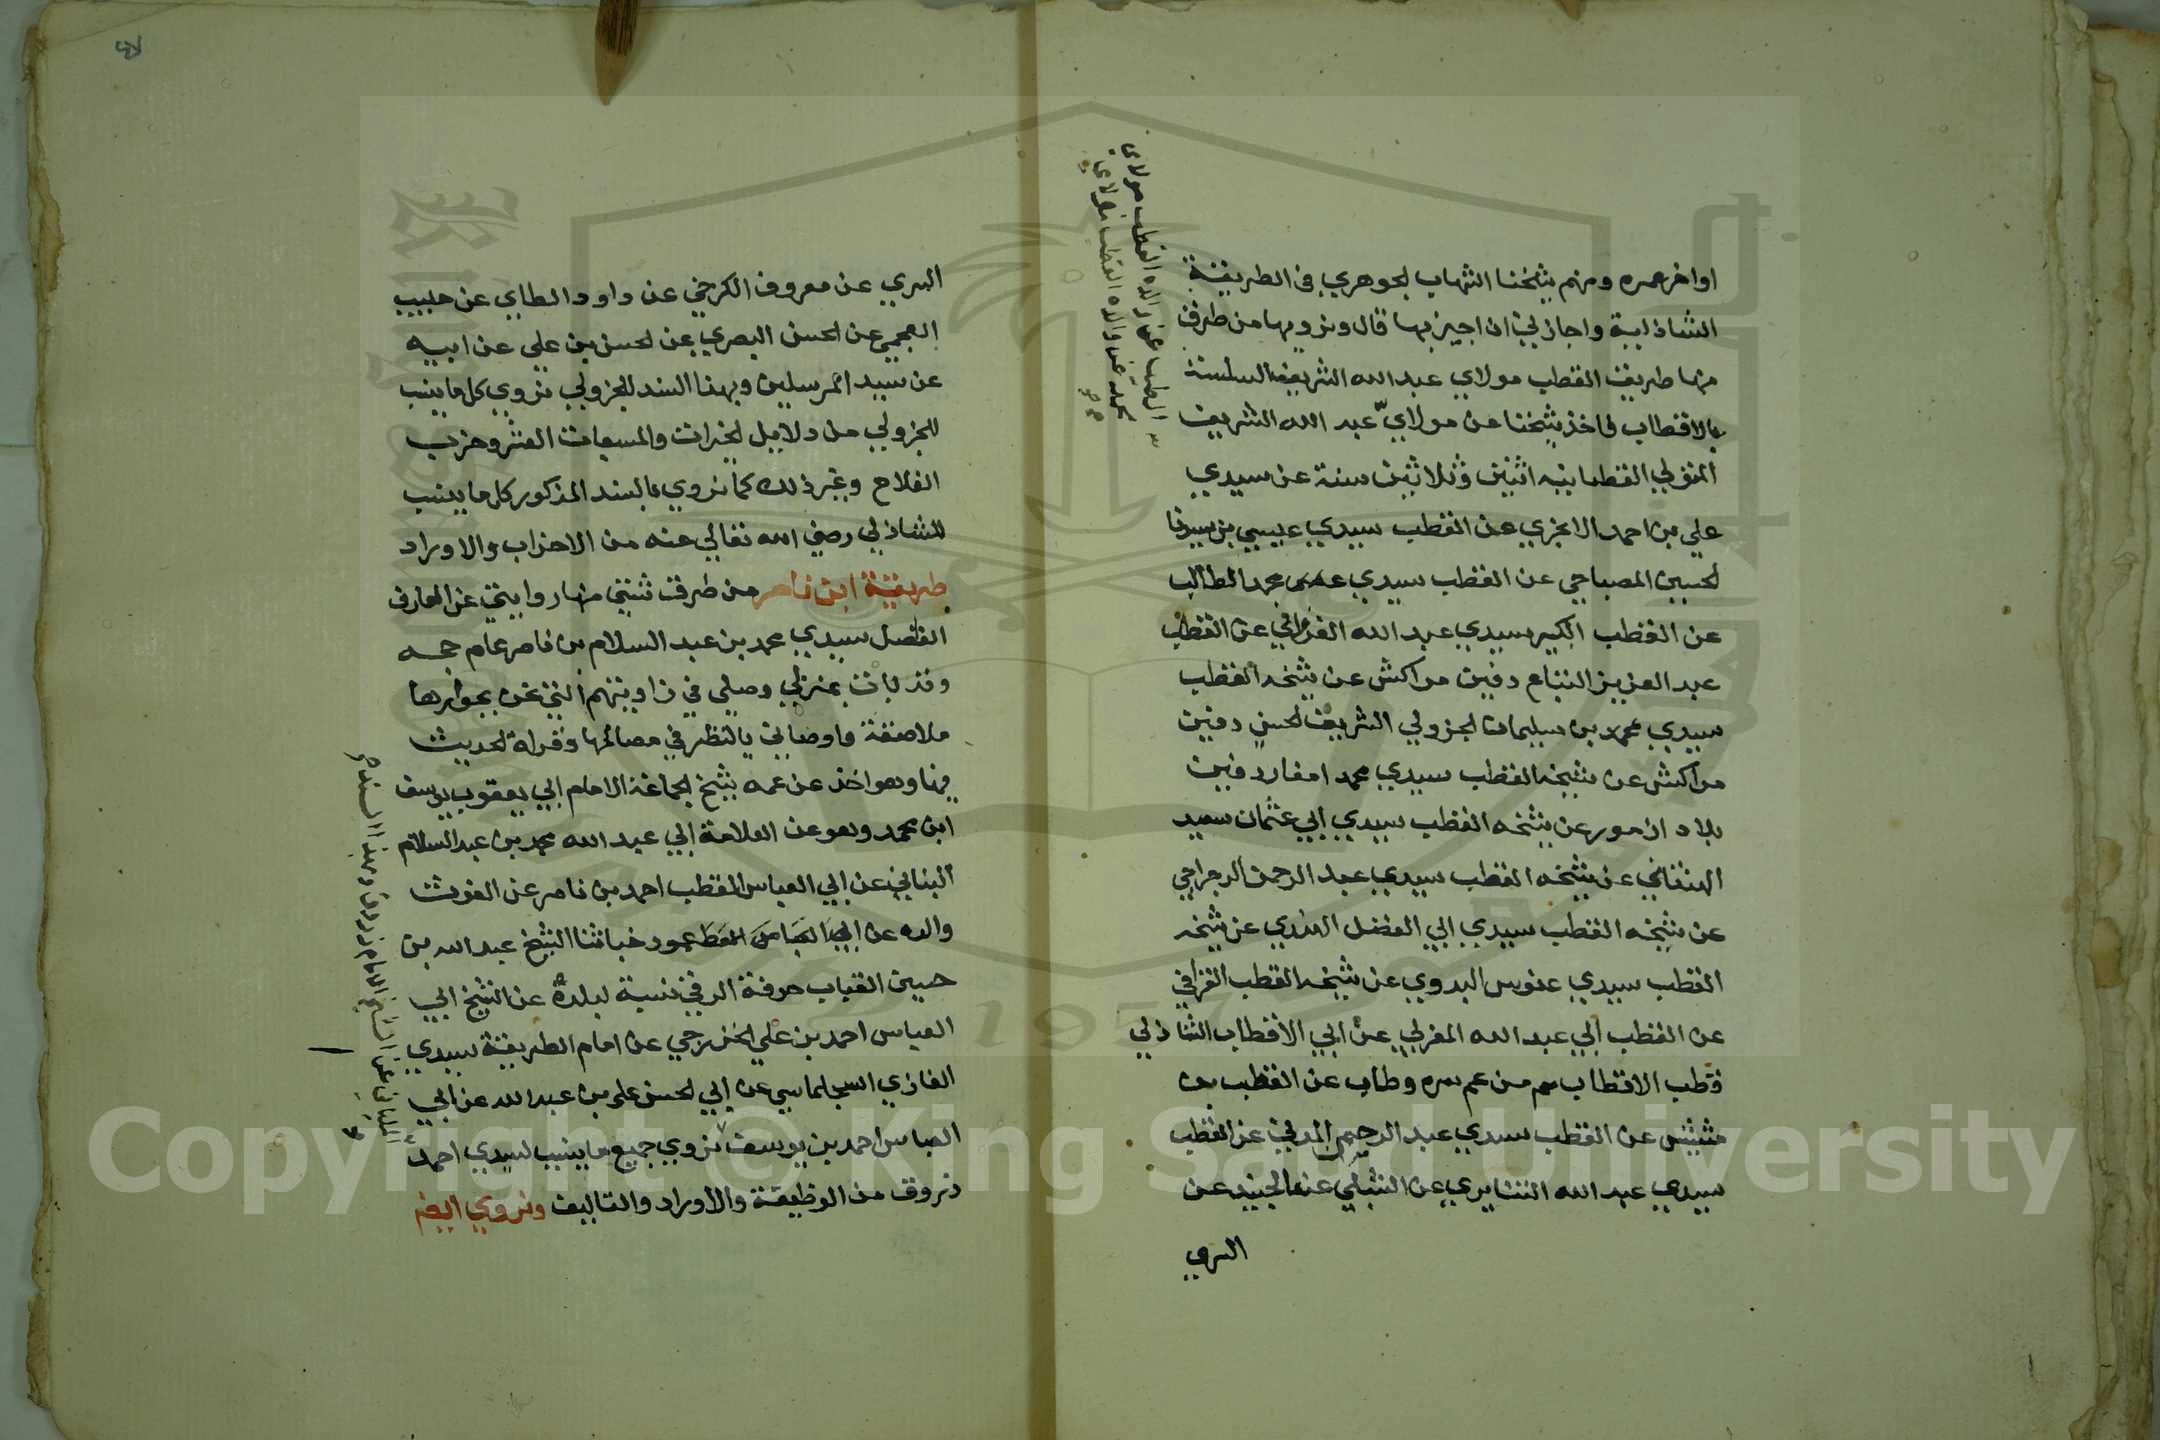 اواخر عمره ومنهم شيخنا الشهاب الجوهري في الطريقة
الشاذلية واجاز لي ان اجيز بها قال ونرويها من طرق
منها طريق القطب مولاي عبد الله الشريف السلسلة
بالاقطاب فاخذ شيخنا عن مولاي عبد الله الشريف
المتولي القطبانية اثنين وثلاثين سنة عن سيدي
علي بن احمد الانجزي عن القطب سيدي عيسي بن سيدنا
الحسين المصباحي عن القطب سيدي محمد الطالب
عن القطب الكبير سيدي عبد الله الغزاني عن القطب
عبد العزيز التباع دفين مراكش عن شيخه القطب
سيدي محمد بن سليمان الجزولي الشريف الحسن دفين
مراكش عن شيخه القطب سيدي محمد امغار دفين
بلاد ازمور عن شيخه القطب سيدي ابي عثمان سعيد
الهنتاني عن شيخه القطب سيدي عبد الرحمن الرجراجي
عن شيخه القطب سيدي ابي الفضل الهندي عن شيخه
القطب سيدي عنوس البدوي عن شيخه القطب القرافي
عن القطب ابي عبد الله المغربي عن ابي الاقطاب الشاذلي
قطب الاقطاب من عم سره وطاب عن القطب بن
مشيش عن القطب سيدي عبد الرحيم المدني عن القطب
سيدي عبد الله التنايري عن الشبلي عن الجنيد عن
السري
القطب عن والده القطب مولاي
محمد عن والده القطب مولاي
السري عن معروف الكرخي عن داود الطاي عن حبيب
العجمي عن الحسن البصري عن الحسن بن علي عن ابيه
عن سيد المرسلين وبهذا السند للجزولي نروي كل ما ينسب
للجزولي من دلايل الخيرات والمسبعات العشر وحزب
الفلاح وغير ذلك كما نروي بالسند المذكور كل ما ينسب
للشاذلي رضي الله تعالي عنه من الاحزاب والاوراد
طريقة ابن ناصر من طرق شتي منها روايتي عن العارف
الفضل سيدي محمد بن عبد السلام بن ناصر عام حجه
وقد بات بمنزلي وصلي في زاويتهم التي نحن بجوارها
ملاصقة واوصاني بالنظر في مصالحها وقراة الحديث
فيها وهو اخذ عن عمه شيخ الجماعة الامام ابي يعقوب يوسف
ابن محمد وهو عن العلامة ابي عبد الله محمد بن عبد السلام
البناني عن ابي العباس القطب احمد بن ناصر عن الغوث
والده عن ابي العباس القطب عمود خباثنا الشيخ عبد الله بن
حسين القباب حرفة الرقي نسبة لبلدة عن الشيخ ابي
العباس احمد بن علي الخزرجي عن امام الطريقة سيدي
الغازي السجلماسي عن ابي الحسن علي بن عبد الله عن ابي
العباس احمد بن يوسف نروي جميع ما ينسب لسيدي احمد
زروق من الوظيفة والاوراد والتاليف ونروي ايضا
الملياني عن الشيخ الامام زروق وبهذا السند
Copyright © King Saud University
1957